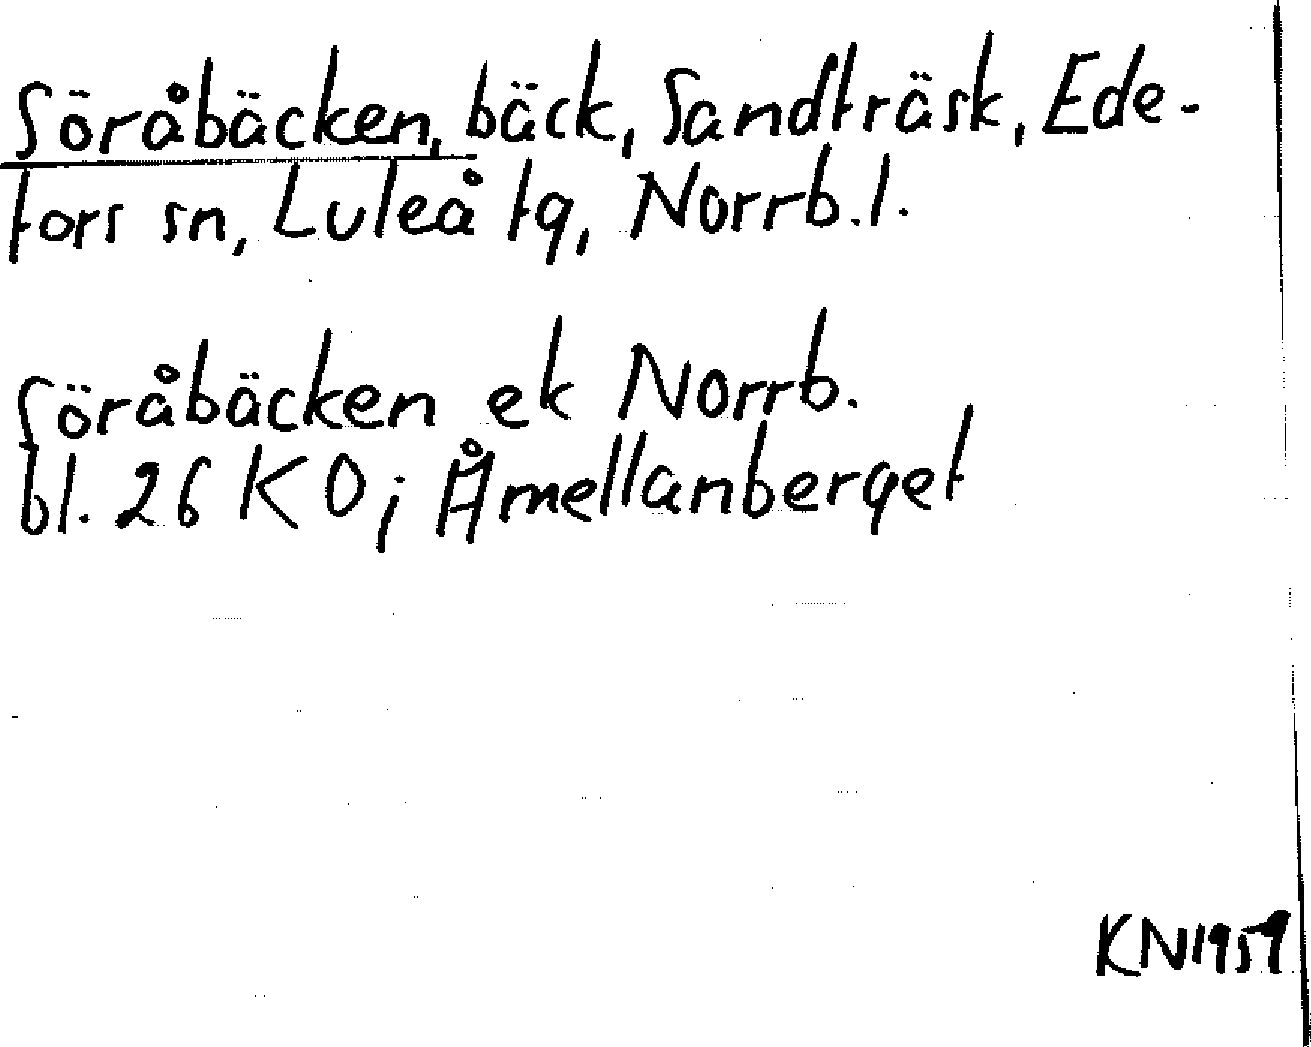 Söråbäcken, bäck, Sandträsk, Ede-
fors sn, Luleå tg, Norrb.l.
Söråbäcken ek Norrb.
bl. 26 KO; Åmellanberget
KN1959